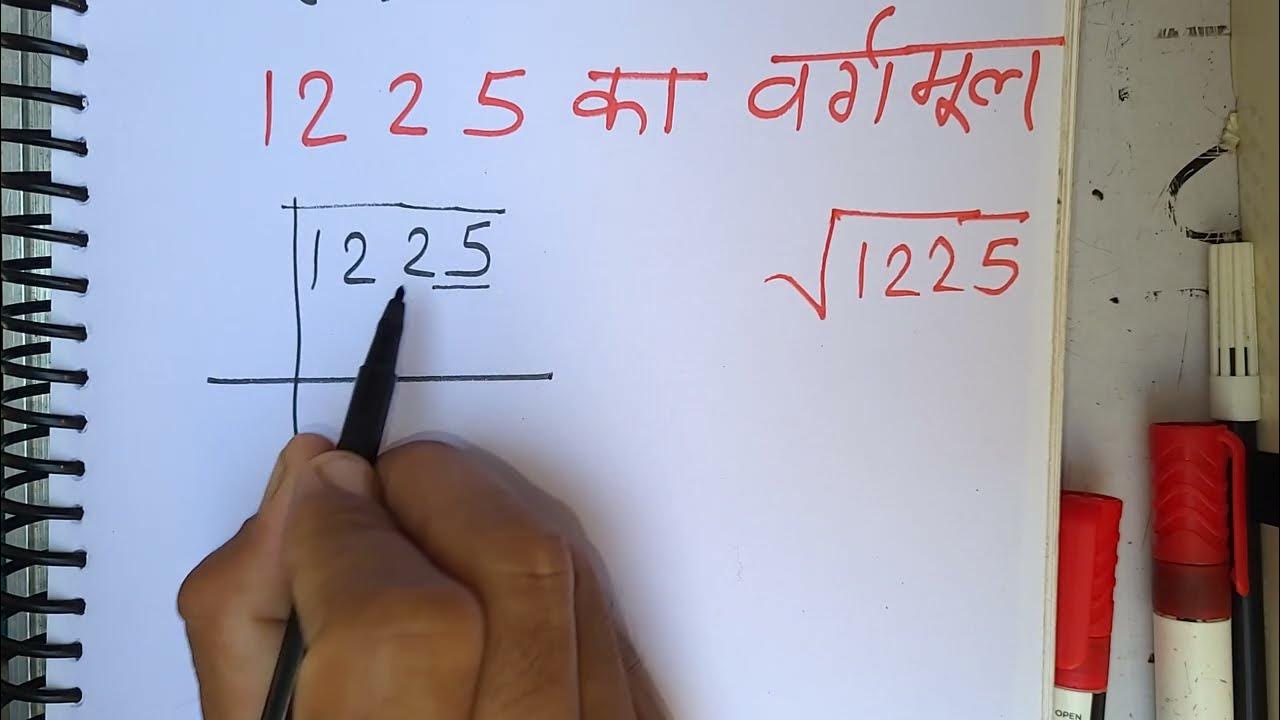 1225 का वर्गमूल
1225
√1225
OPEN